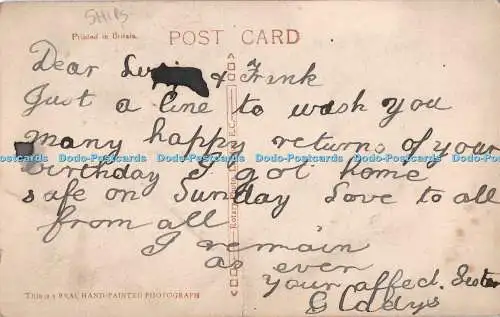 SHIPS
Printed in Britain.
POST CARD
Dear & Frink
Just a line to wish you
many happy returns of your
Dodo-Postcards Dodo-Postcards Dodo-Postcards Dodo-Postcards Dodo-Postcards
birthday I got home
safe on Sunday Love to all
from all
I remain
as ever
your affect. Sister
Gladys
Rotary Photo, E.C.
THIS IS A REAL HAND-PAINTED PHOTOGRAPH